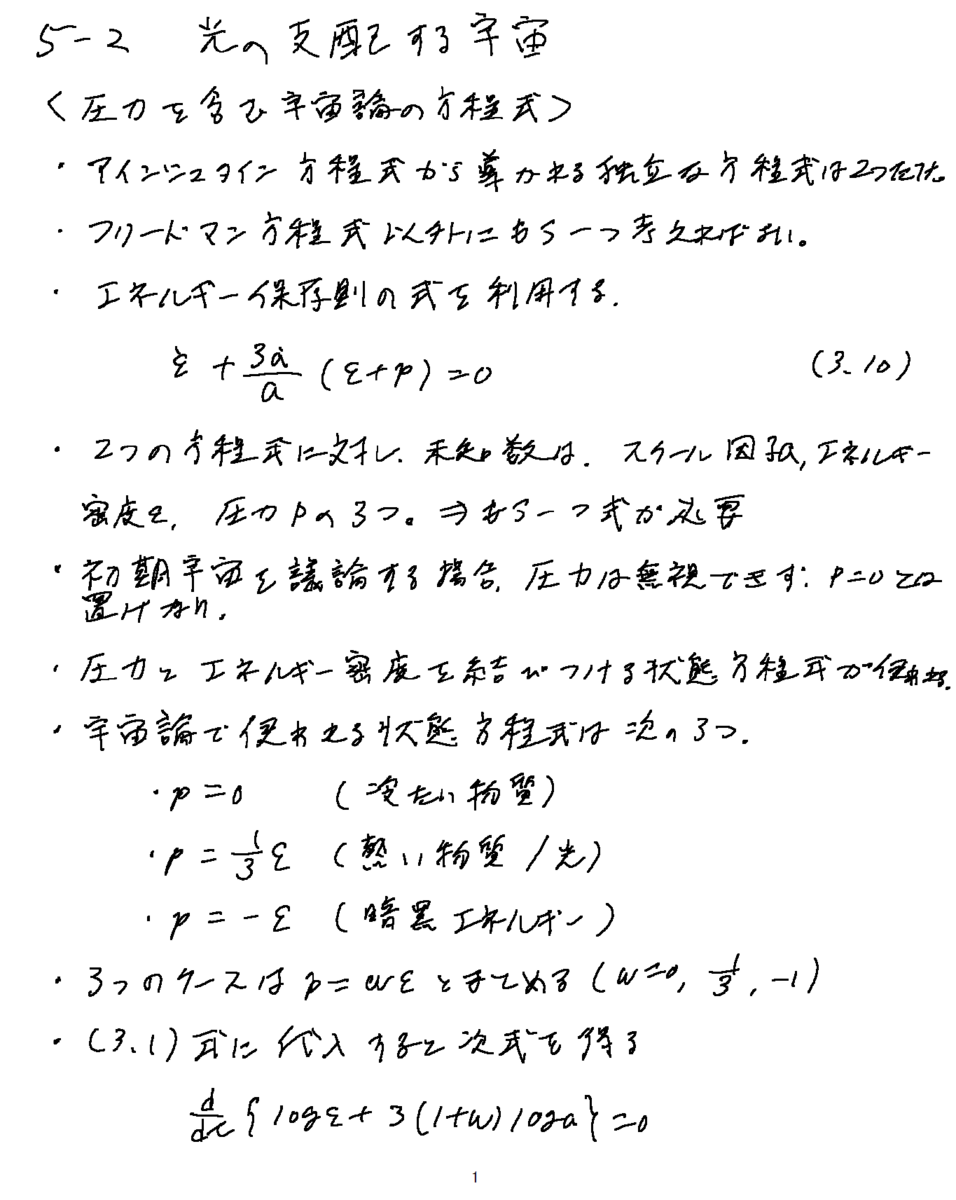 5-2 光の支配する宇宙
〈圧力を含む宇宙論の方程式〉
・アインシュタイン方程式から導かれる独立な方程式は2つだけ。
・フリードマン方程式以外にもう一つ考えればよい。
・エネルギー保存則の式を利用する.
ε̇ + 3ȧ/a (ε+p) = 0 (3.10)
・2つの方程式に対し、未知数は、スケール因子a, エネルギー
密度ε, 圧力pの3つ。⇒もう一つ式が必要
・初期宇宙を議論する場合, 圧力は無視できず: p=0とは
置けない.
・圧力とエネルギー密度を結びつける状態方程式が使われる.
・宇宙論で使われる状態方程式は次の3つ.
・p = 0 (冷たい物質)
・p = 1/3 ε (熱い物質/光)
・p = -ε (暗黒エネルギー)
・3つのケースはp=wεとまとめる (w=0, 1/3, -1)
・(3.1)式に代入すると次式を得る
d/dt {logε + 3(1+w)loga} = 0
1